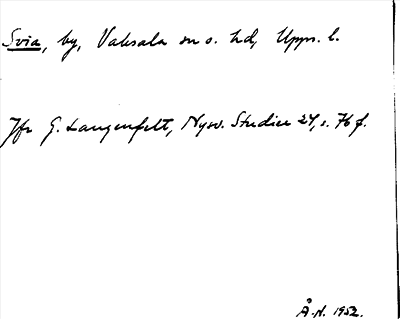 Svia, by, Vaksala sn o. hd, Upps. l.
Jfr G. Langenfelt, Nysv. Studier 24, s. 76 f.
Å.N. 1952.